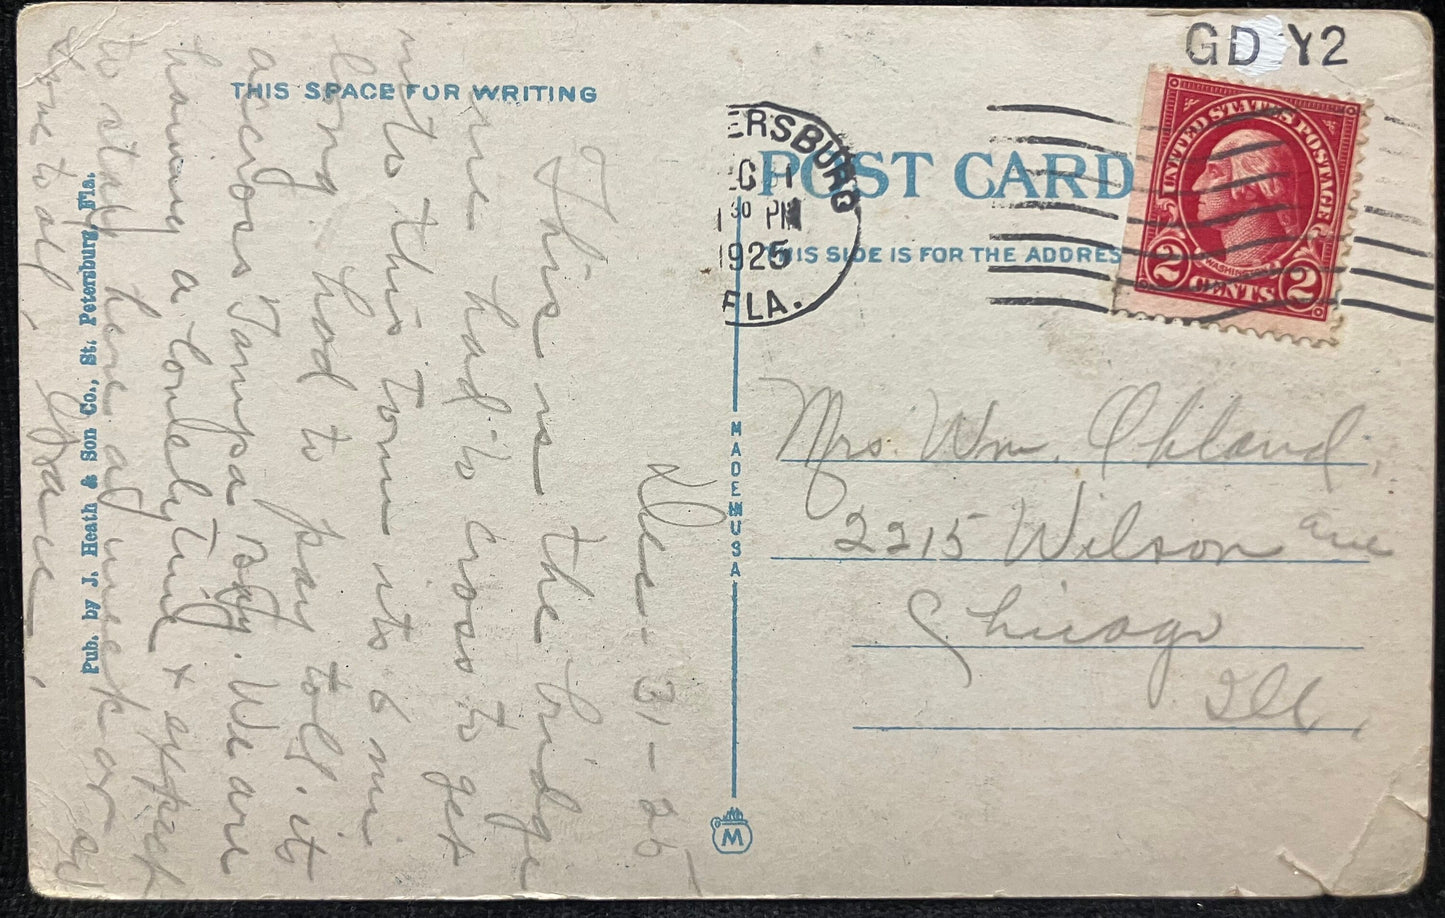 GD Y2
THIS SPACE FOR WRITING
POST CARD
THIS SIDE IS FOR THE ADDRES
ERSBURG
EC 1
1 30 PM
1925
FLA.
UNITED STATES POSTAGE
WASHINGTON
2 CENTS 2
Dec - 31 - 25
This is the bridge
we had to cross to get
into this town its 6 mi
long. had to pay toll. it
across Tampa Bay. We are
having a lovely time & expect
to stay here a week or so
Love to all,
Mrs. Wm. Ohland,
2215 Wilson ave
Chicago
Ill.
MADE IN USA
M
Pub. by J. Heath & Son Co., St. Petersburg, Fla.